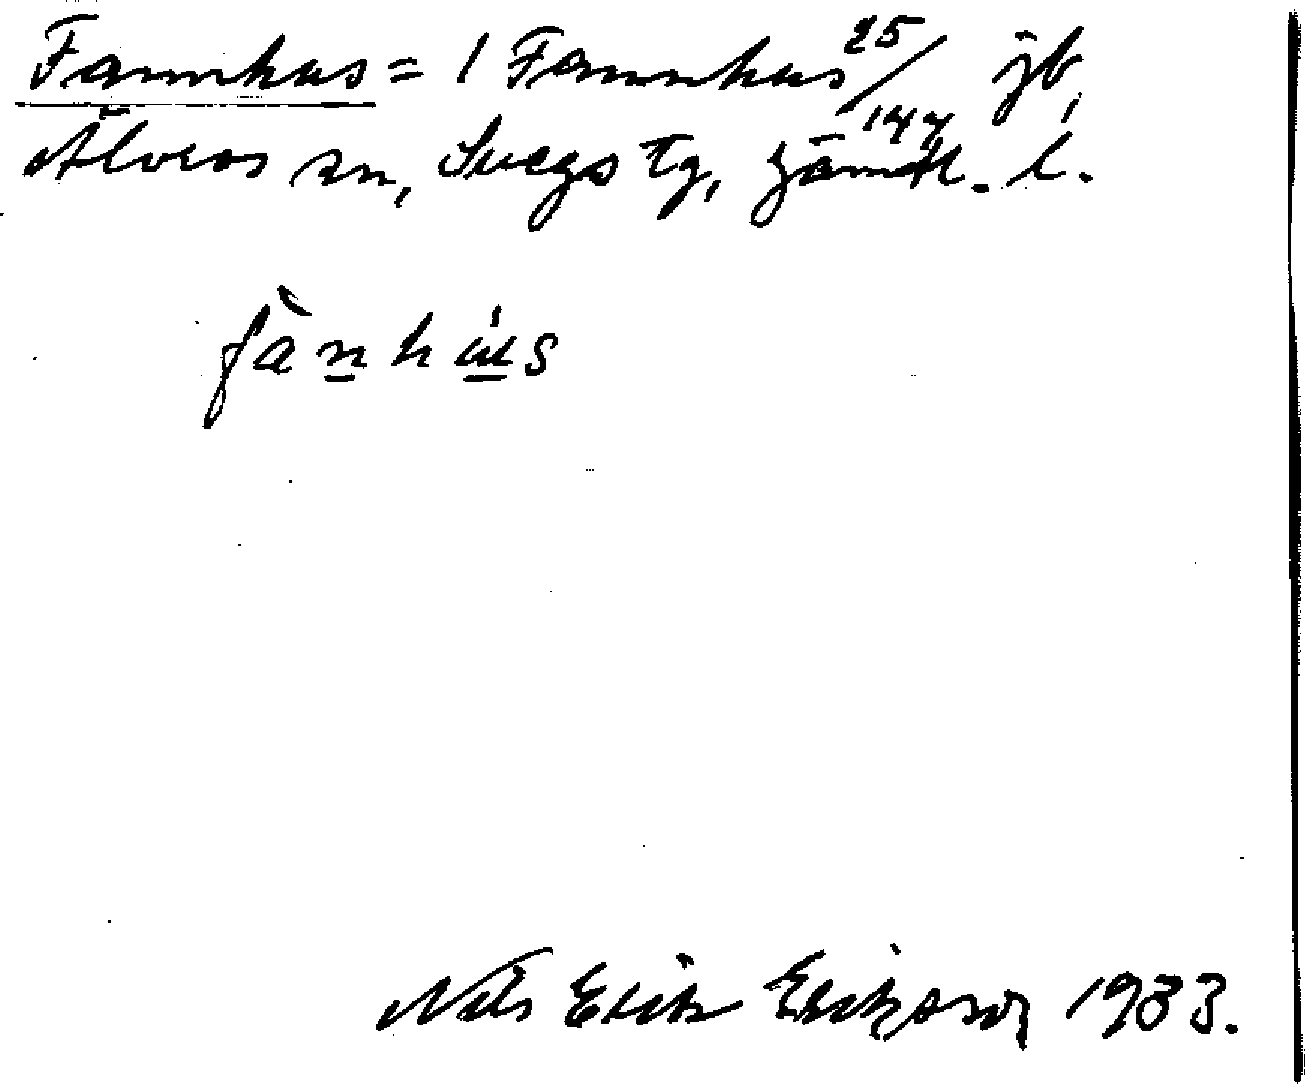 Fannhus = 1 Fannhus 25/147 jb,
Älvros sn, Svegs tg, Jämtl. l.
fànhús
Nils Erik Eriksson 1933.